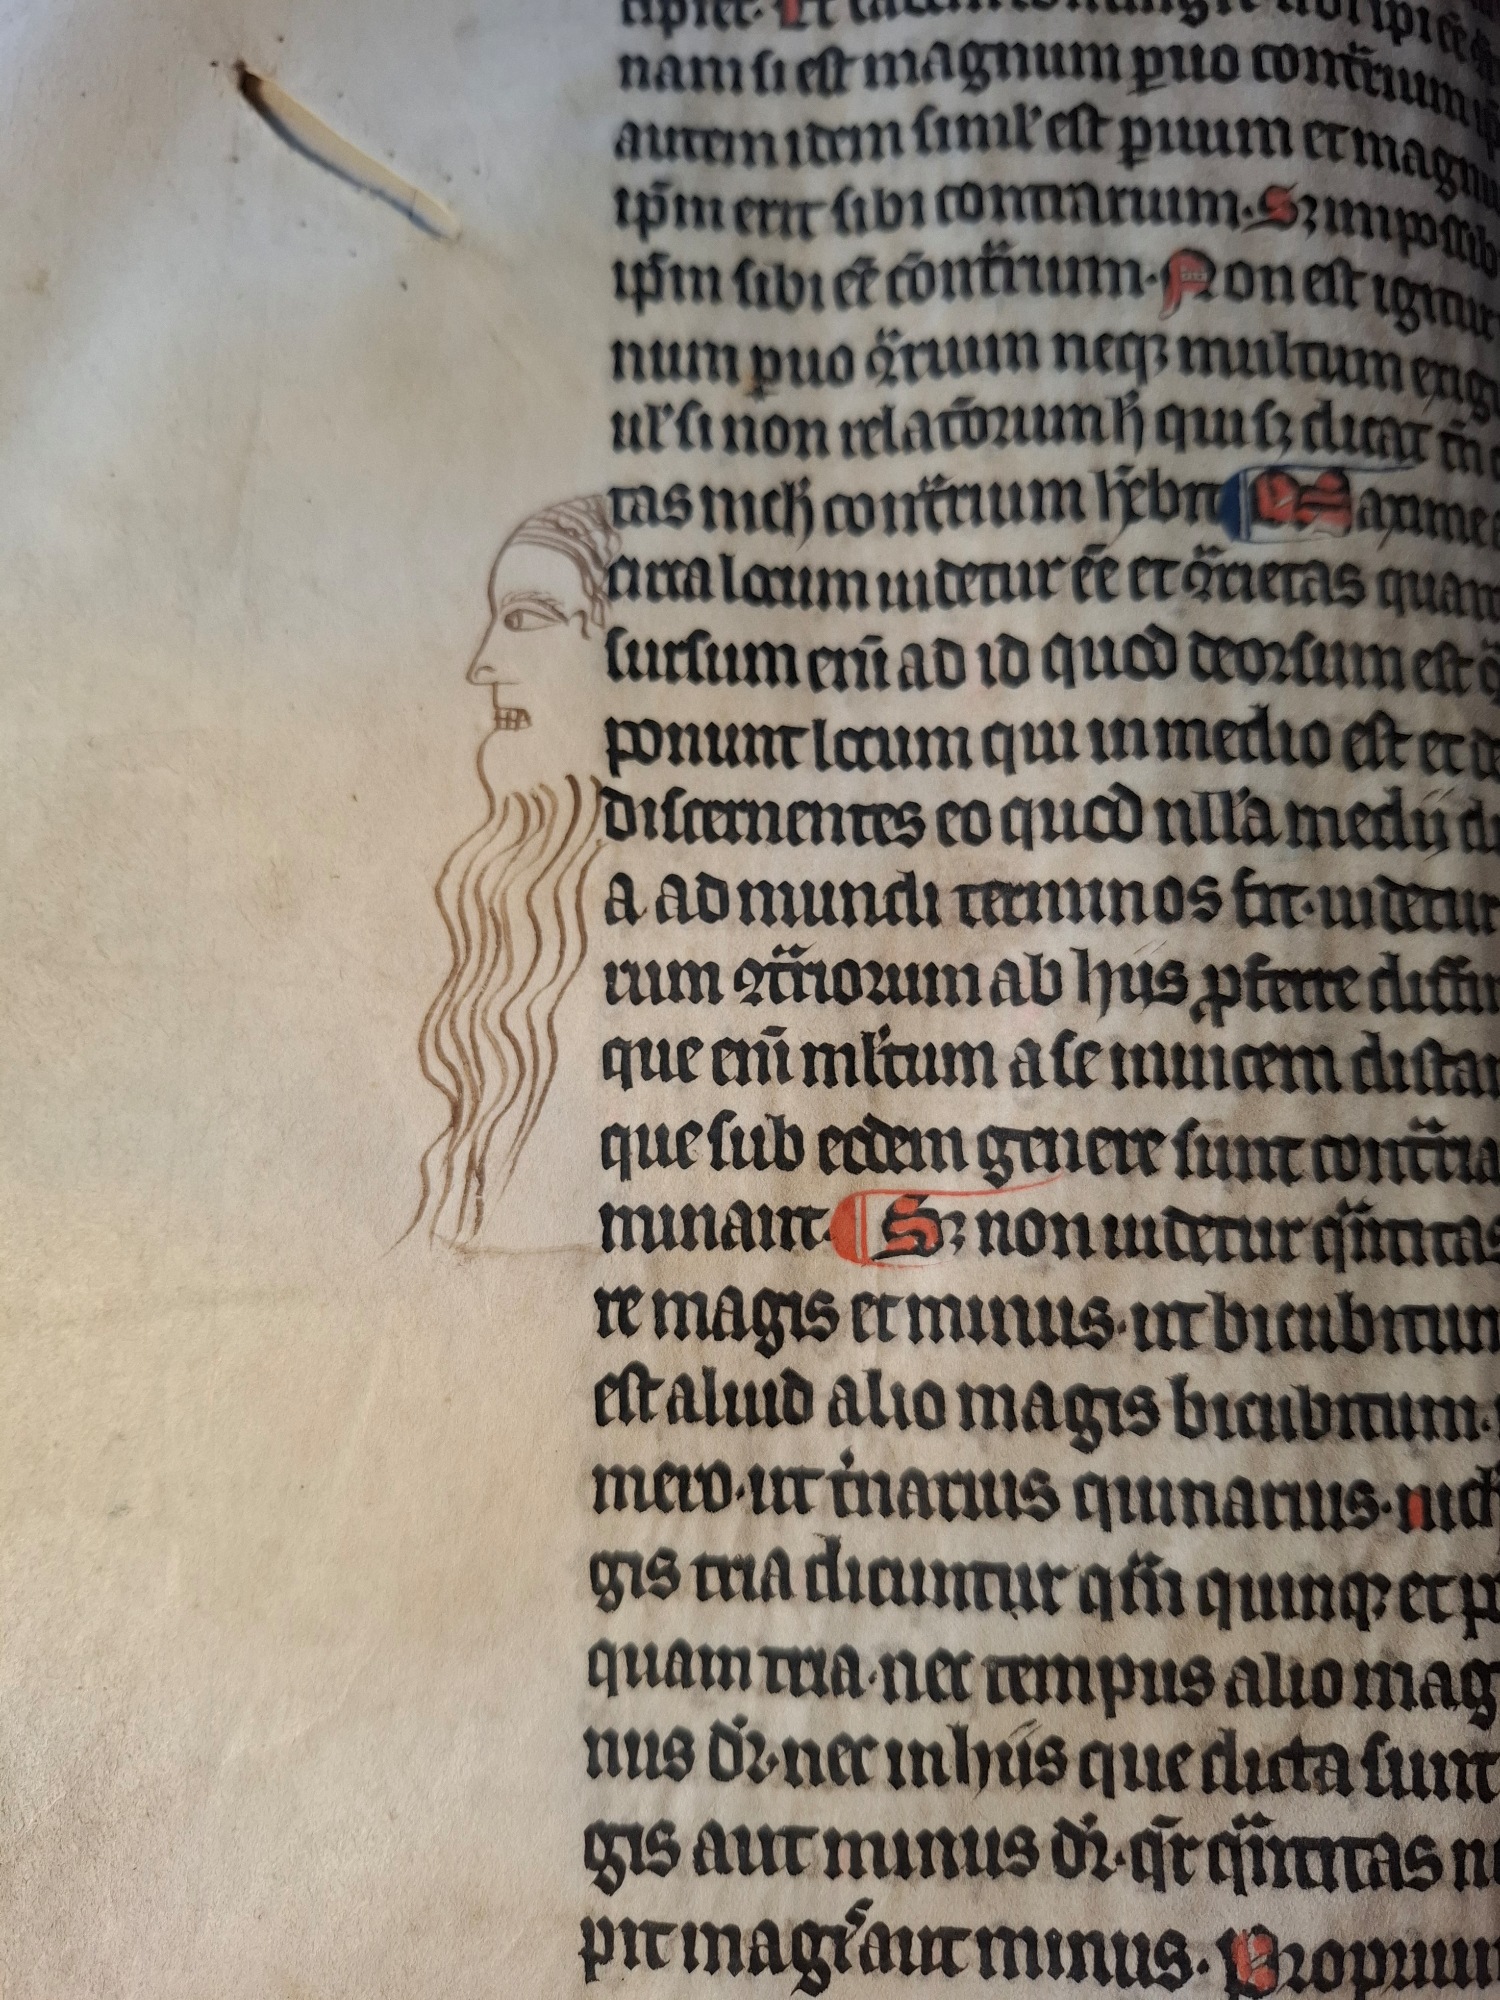 cipiet. Et tal
nam si est magnum ꝑuo cont̃rium
autem idem simil' est ꝑuum et magnu
ip̃m erit sibi contrarium. Sꝫ impossib
ip̃m sibi eẽ cont̃rium. Non est igitur
num ꝑuo ꝯ̃rium neqꝫ multum exig
ul' si non relatõrum h̃ quis dicat tñ
tas nich' cont̃rium h̃ebit Maxime
circa locum uidetur eẽ ꝯ̃rietas quan
sursum eni̅ ad id quod deorsum est
ponunt locum qui in medio est et
discernentes eo quod nll'a medij di
a ad mundi terminos sit. uidetur
rum ꝯt̃riorum ab hijs ꝓferre diffin
que eni̅ ml'tum a se inuicem distan
que sub eodem genere sunt cont̃ria
minant. Sꝫ non uidetur qũtitas
re magis et minus. ut bicubitum
est aliud alio magis bicubitum.
mero. ut t̓narius quinarius. nich
gis tria dicuntur q̃m quinqꝫ et p
quam tria. nec tempus alio mag
nus dr̃. nec in hijs que dicta sunt
gis aut minus dr̃. q̃r qũtitas n
pit magis aut minus. Propriu